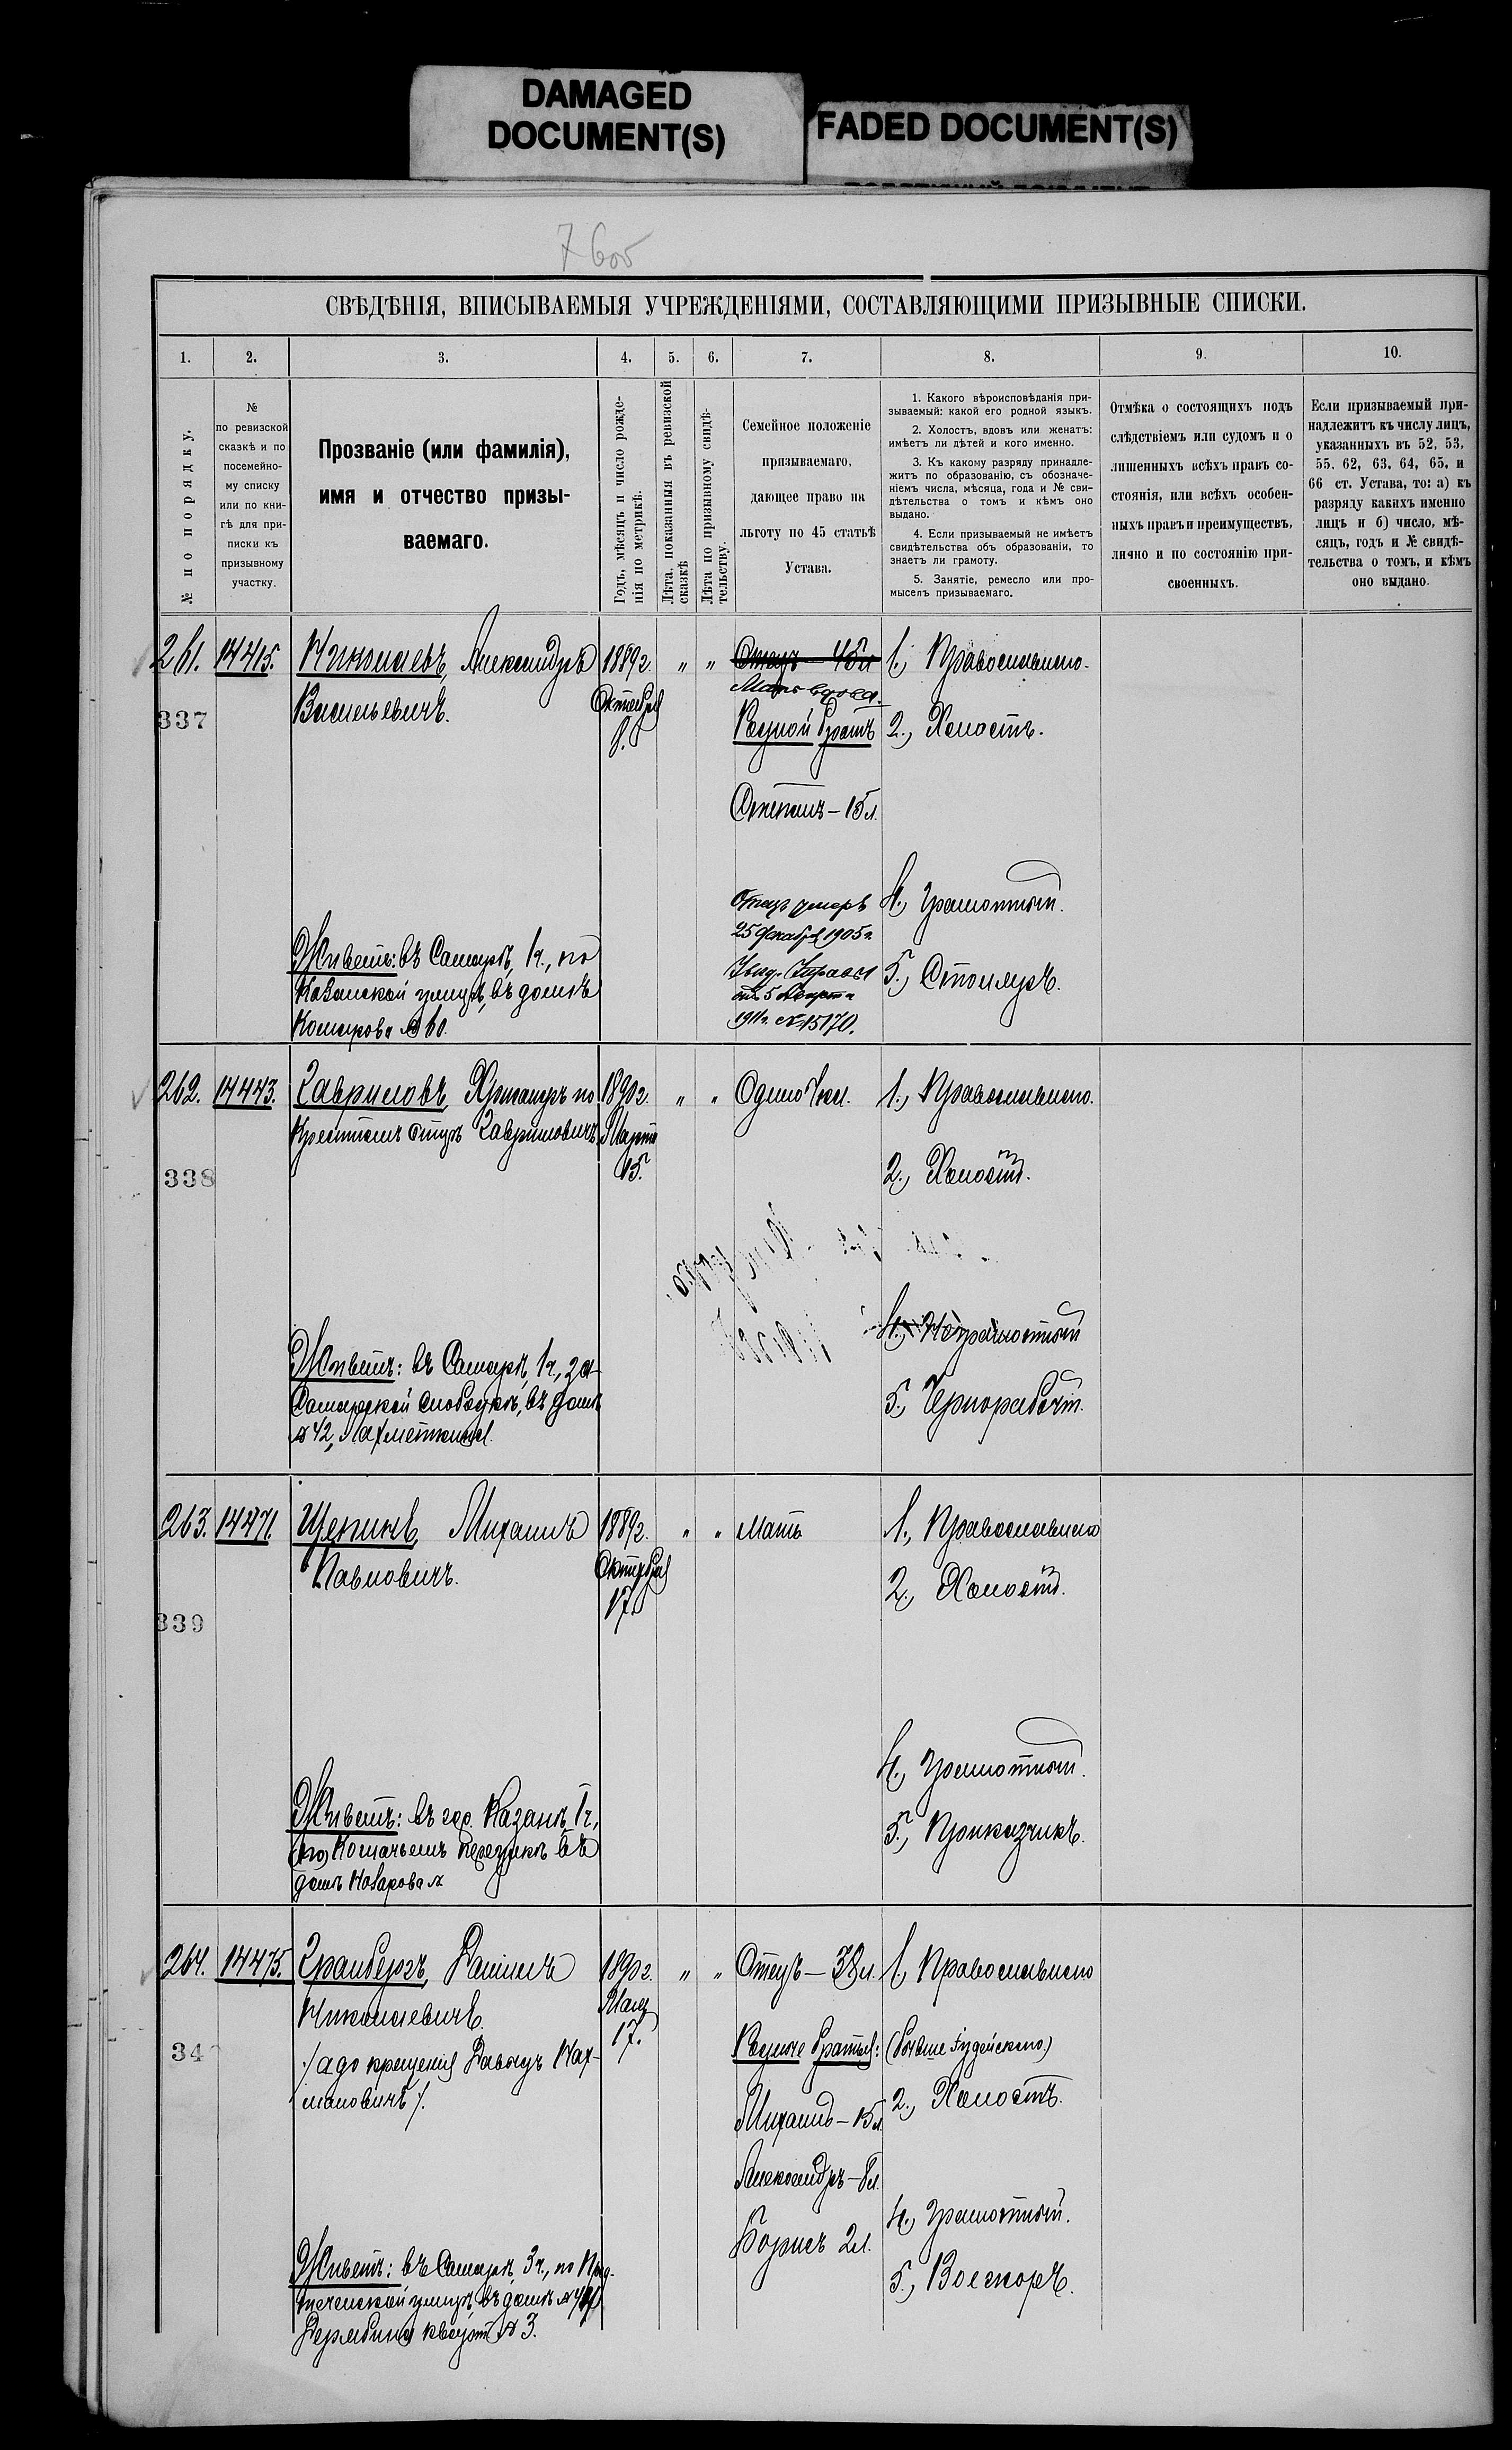 DAMAGED
DOCUMENT(S)
FADED DOCUMENT(S)
СВѢДѢНІЯ, ВПИСЫВАЕМЫЯ УЧРЕЖДЕНІЯМИ, СОСТАВЛЯЮЩИМИ ПРИЗЫВНЫЕ СПИСКИ.
1.
2.
3.
4.
5.
6.
7.
8.
9.
10.
№ по порядку.
№
по ревизской
сказкѣ и по
посемейно-
му списку
или по кни-
гѣ для при-
писки къ
призывному
участку.
Прозваніе (или фамилія),
имя и отчество призы-
ваемаго.
Годъ, мѣсяцъ и число рожде-
нія по метрикѣ.
Лѣта, показанныя въ ревизской
сказкѣ
Лѣта по призывному свидѣ-
тельству.
Семейное положеніе
призываемаго,
дающее право на
льготу по 45 статьѣ
Устава.
1. Какого вѣроисповѣданія при-
зываемый: какой его родной языкъ.
2. Холостъ, вдовъ или женатъ:
имѣетъ ли дѣтей и кого именно.
3. Къ какому разряду принадле-
житъ по образованію, съ обозначе-
ніемъ числа, мѣсяца, года и № сви-
дѣтельства о томъ и кѣмъ оно
выдано.
4. Если призываемый не имѣетъ
свидѣтельства объ образованіи, то
знаетъ ли грамоту.
5. Занятіе, ремесло или про-
мыселъ призываемаго.
Отмѣка о состоящихъ подъ
слѣдствіемъ или судомъ и о
лишенныхъ всѣхъ правъ со-
стоянія, или всѣхъ особен-
ныхъ правъ и преимуществъ,
лично и по состоянію при-
своенныхъ.
Если призываемый при-
надлежитъ къ числу лицъ,
указанныхъ въ 52, 53,
55, 62, 63, 64, 65, и
66 ст. Устава, то: а) къ
разряду какихъ именно
лицъ и б) число, мѣ-
сяцъ, годъ и № свидѣ-
тельства о томъ, и кѣмъ
оно выдано.
261.
14415.
337
Николаевъ, Александръ
Васильевичъ.
Живетъ: въ Самарѣ, 1 ч., по
Казанской улицѣ, въ домѣ
Комарова № 60.
1889 г.
Октября
8.
"
"
Отецъ — 45 л
Мать вдова.
Родной братъ
Степанъ — 15 л.
Отецъ умеръ
25 декабря 1905 г.
Увед. Управы
отъ 5 Марта
1911 г. № 15170.
1., Православнаго.
2., Холостъ.
4., Грамотный.
5., Столяръ.
262.
14443.
338
Гавриловъ, по
Гавриловичъ
Живетъ: въ Самарѣ, 1 ч., за
Самарской слободкѣ, въ домѣ
№ 42,
1890 г.
Марта
15.
"
"
Одиночка.
1., Православнаго.
2., Холостъ.
4., Неграмотный
5., Чернорабочій.
263.
14471.
339
Щепинъ, Михаилъ
Павловичъ.
Живетъ: въ гор. Казани, 1 ч.,
домѣ
1889 г.
Октября
17.
"
"
Мать
1., Православнаго
2., Холостъ.
4., Грамотный.
5., Приказчикъ.
264.
14475.
34
Гранбергъ, Даніилъ
Николаевичъ.
/ а до крещенія Давыдъ Нах-
мановичъ /.
Живетъ: въ Самарѣ, 3 ч., по Пред-
теченской улицѣ, въ домѣ № 47
Дерябина кварт. № 3.
1890 г.
Мая
17.
"
"
Отецъ — 38 л.
Родные братья:
Михаилъ — 15 л.
Александръ — 8 л.
Борисъ 2 л.
1., Православнаго
(бывше Іудейскаго.)
2., Холостъ.
4., Грамотный.
5., Вояжоръ.